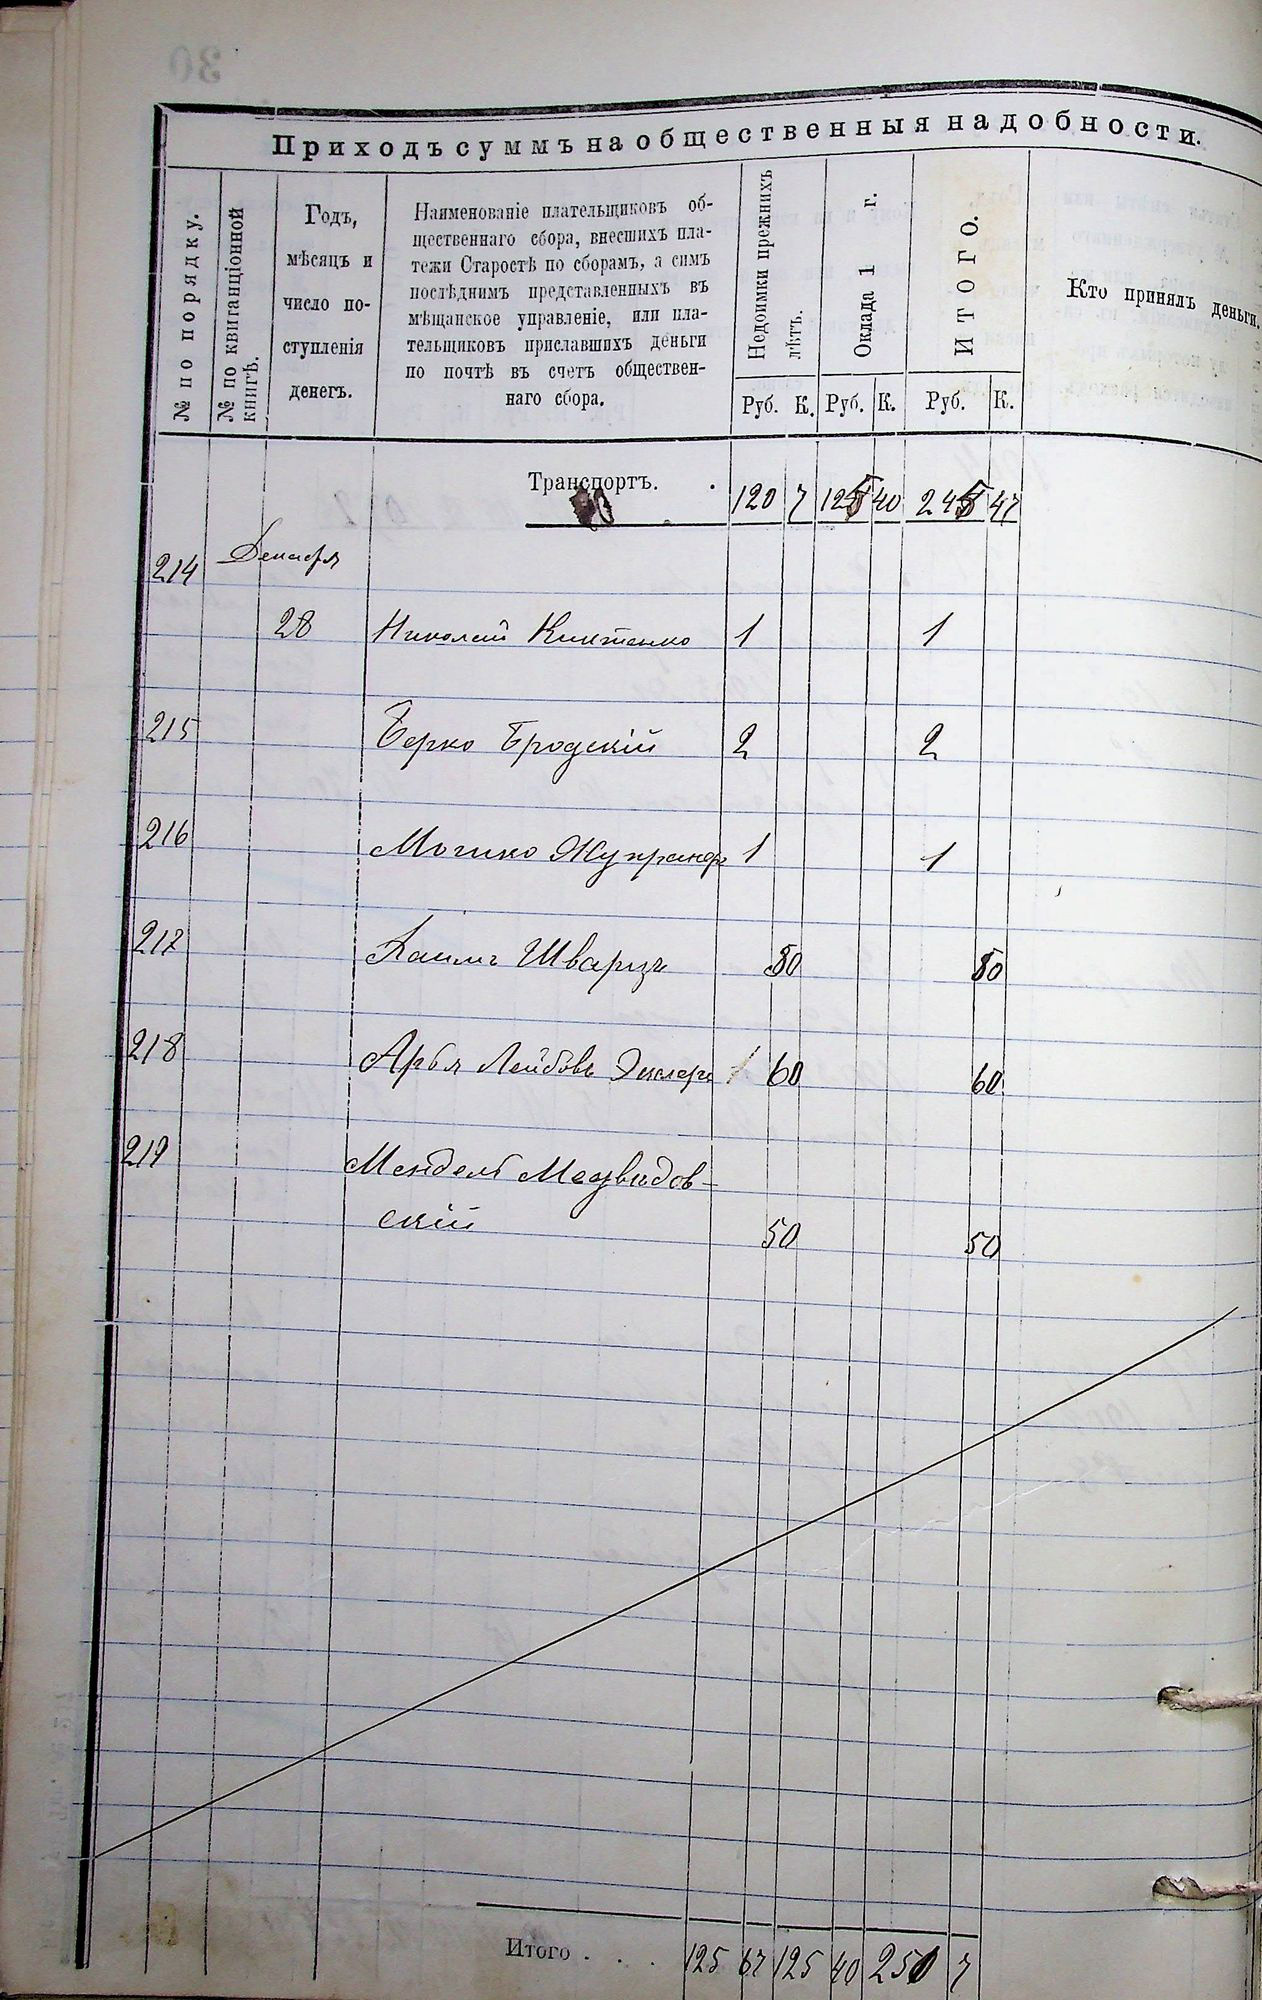 30
Приходъ суммъ на общественныя надобности.
№ по порядку.
№ по квитанціонной
книгѣ.
Годъ,
мѣсяцъ и
число по-
ступленія
денегъ.
Наименованіе плательщиковъ об-
щественнаго сбора, внесшихъ пла-
тежи Старостѣ по сборамъ, а симъ
послѣднимъ представленныхъ въ
мѣщанское управленіе, или пла-
тельщиковъ приславшихъ деньги
по почтѣ въ счетъ обществен-
наго сбора.
Недоимки прежнихъ
лѣтъ.
Оклада 1 г.
ИТОГО.
Кто принялъ деньги.
Руб. К. Руб. К. Руб. К.
Транспортъ. 120 7 125 40 245 47
214 Декабря
28 Николай Киктенко 1 1
215 Берко Бродскій 2 2
216 Мошко 1 1
217 Хаимъ Шварцъ 50 50
218 Арья Лейбовъ 60 60
219 Мендель Медвидов-
скій 50 50
Итого . . . 125 67 125 40 251 7